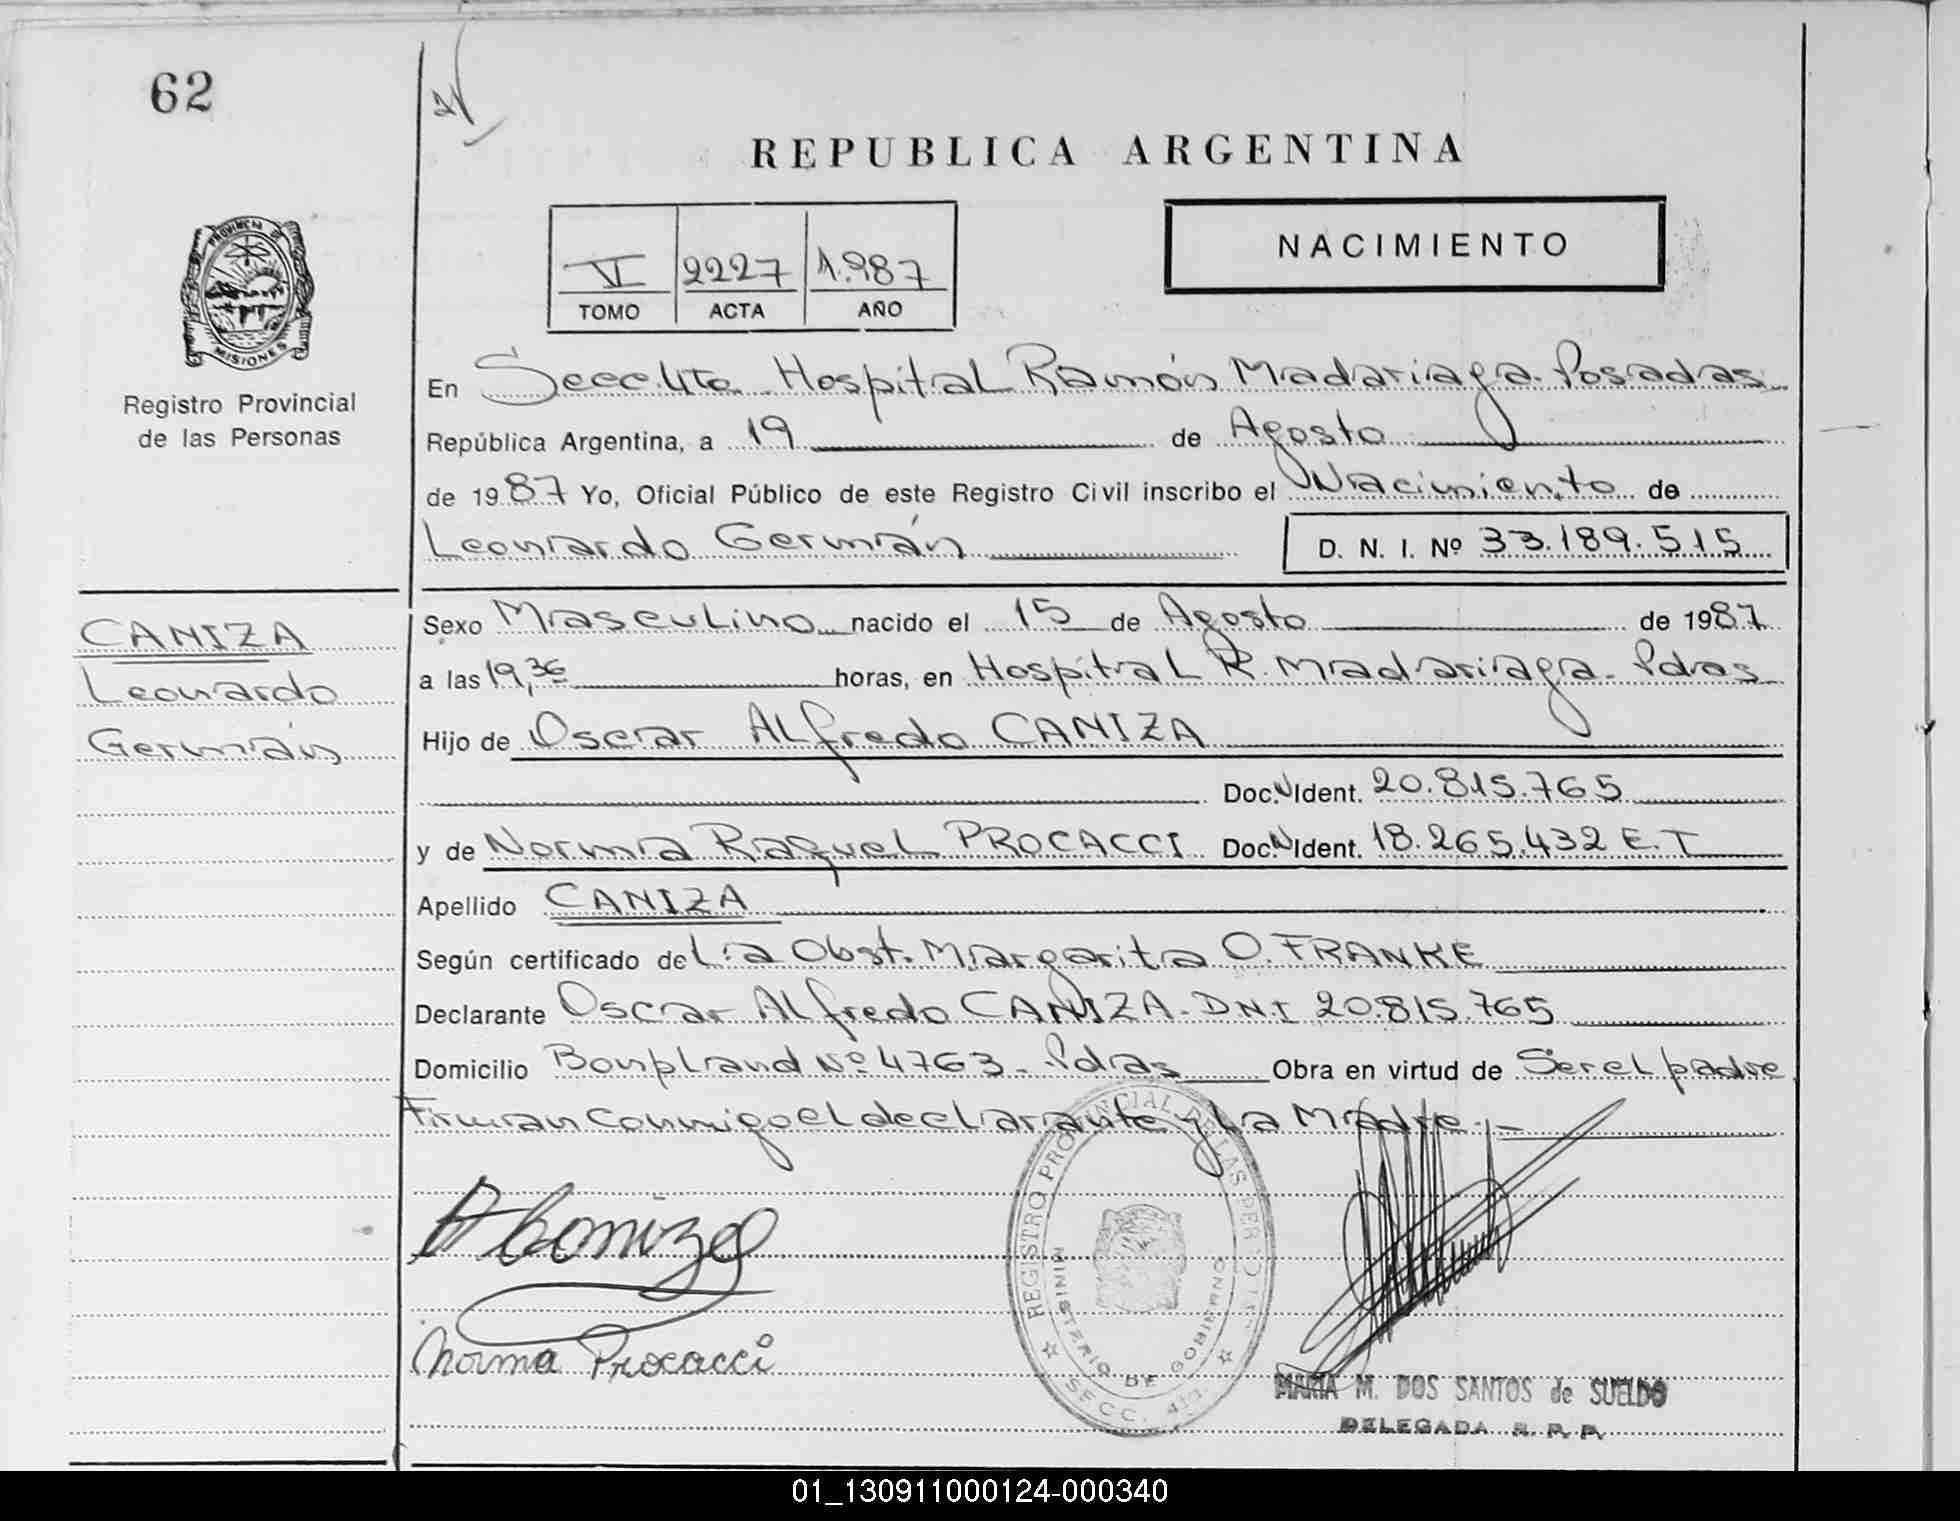 62
REPUBLICA ARGENTINA
VI 2227 1.987
TOMO ACTA AÑO
NACIMIENTO
PROVINCIA DE
MISIONES
Registro Provincial
de las Personas
En Secc.4ta. Hospital Ramón Madariaga. Posadas
República Argentina, a 19 de Agosto
de 1987 Yo, Oficial Público de este Registro Civil inscribo el Nacimiento de
Leonardo Germán D. N. I. Nº 33.189.515
CANIZA
Leonardo
Germán
Sexo Masculino nacido el 15 de Agosto de 1987
a las 19,36 horas, en Hospital R. Madariaga. Pdas
Hijo de Oscar Alfredo CANIZA
Doc. N Ident. 20.815.765
y de Norma Raquel PROCACCI Doc. N Ident. 18.265.432 E.T
Apellido CANIZA
Según certificado de La Obst. Margarita O. FRANKE
Declarante Oscar Alfredo CANIZA. DNI 20.815.765
Domicilio Bonpland Nº 4763. Pdas Obra en virtud de Ser el padre
Firman conmigo el declarante y La Madre.-
Caniza
Norma Procacci
REGISTRO PROVINCIAL DE LAS PERSONAS
MINISTERIO DE GOBIERNO
SECC. 4ta.
MARIA M. DOS SANTOS de SUELDO
DELEGADA R. P. P.
01_130911000124-000340